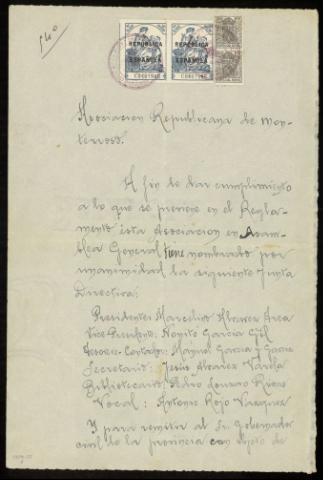 REPUBLICA ESPAÑOLA REPUBLICA ESPAÑOLA
Asociacion Republicana de Mon-
terroso.
A fin de dar cumplimiento
a lo que se previene en el Regla-
mento esta Asociacion en Asam-
blea General tiene nombrado por
unanimidad la siguiente Junta
Directiva:
Presidente: Marcelino Alvarez Arca
Vice-Presidente: Benito Garcia
Tesorero-Contador: Manuel Garcia y Garcia
Secretario: Jesús Alvarez Varela
Bibliotecario: Pedro Lourido Rivas
Vocal: Antonio Rojo Vazquez
Y para remitir al Sr. Gobernador
civil de la provincia con objeto de